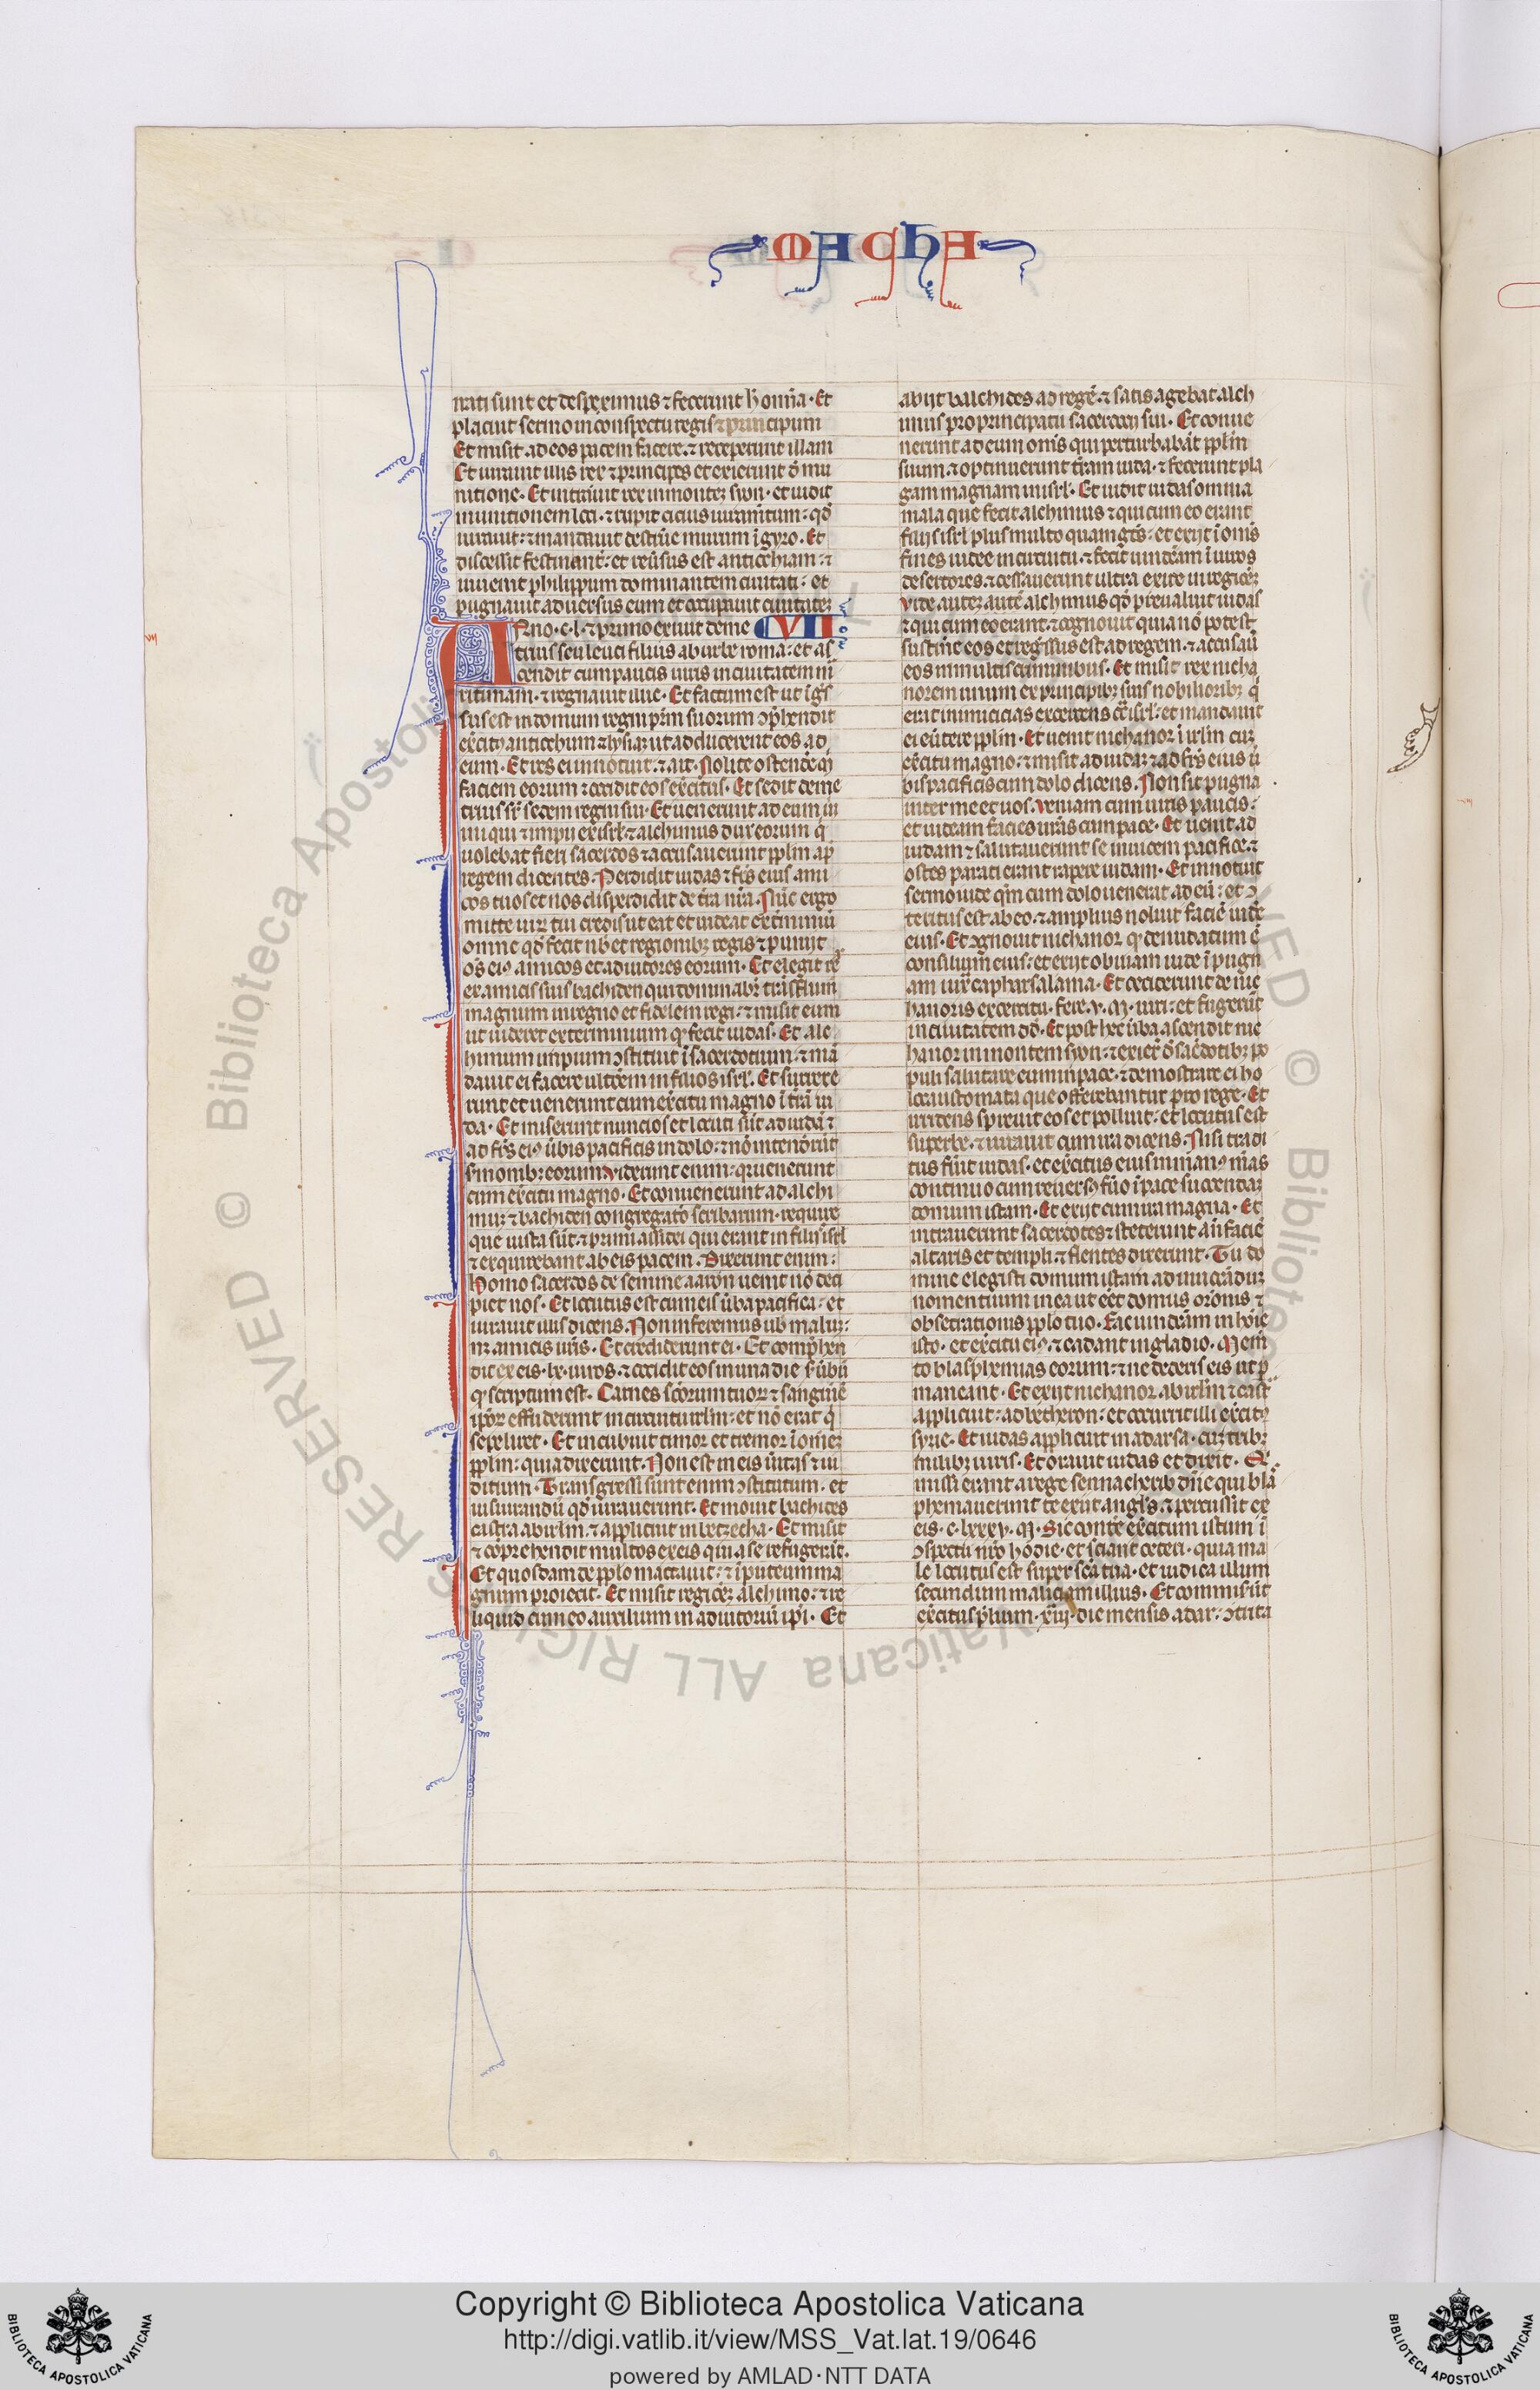 MACHA
irati sunt et despeximus ⁊ fecerunt h̄ omnia. Et
placuit sermo in conspectu regis ⁊ principum
Et misit ad eos pacem facere. ⁊ receperunt illam
Et iurauit illis rex ⁊ principes et exierunt d̄ mu
nitione. Et intrauit rex in monteꝫ syon. et uidit
munitionem loci. ⁊ rupit cicius iuramētum. qđ
iurauit. ⁊ mandauit destrue᷑ murum ī gyro. Et
discessit festinant᷑. et reūsus est antiochiam. ⁊
inuenit philippum dominantem ciuitati. et
pugnauit aduersus eum et occupauit ciuitateꝫ
Anno. c. l. ⁊ primo exiuit deme VII
trius seuleuci filius ab urbe roma. et as
cendit cum paucis uiris in ciuitatem m̄
ritimam. ⁊ regnauit illic. Et factum est ut īgs̄
sus est in domum regni pr̄m suorum ɔp̄hendit
exc̄itꝰ antiochum ⁊ lysiaꝫ ut adducerent eos ad
eum. Et res ei innotuit. ⁊ ait. Nolite ostende᷑ m̄
faciem eorum ⁊ occidit eos exc̄itus. Et sedit deme
trius sr̄ sedem regni sui. Et uenerunt ad eum ui
ri iniqui ⁊ impii ex isrl̄. ⁊ alchimus dux eorum q̄
uolebat fieri sacerdos ⁊ accusauerunt ppl̄m ap̄
regem dicentes. Perdidit iudas ⁊ fr̄s eius ami
cos tuos et nos disperdidit de tr̄a nr̄a. Nūc ergo
mitte uiꝝ cui credis ut eat et uideat extiminiū
omne qđ fecit nb̄ et regionibꝫ regis ⁊ puniit
oēs eiꝰ amicos et adiutores eorum. Et elegit rex
ex amicis suis bachiden qui dominabr̄ trās flum̄
magnum in regno et fidelem regi. ⁊ misit eum
ut uideret exterminium qđ fecit iudas. Et alc
himum impium ɔstituit ī sacerdotium. ⁊ mā
dauit ei facere ultōem in filios isrl̄. Et surrexe
runt et uenerunt cum exc̄itu magno ī tr̄a iu
da. Et miserunt nuncios et locuti sūt ad iudā ⁊
ad fr̄s eiꝰ ūbis pacificis in dolo. ⁊ nō intend̄rūt
sermonibꝫ eorum. Viderunt enim. qr uenerunt
cum exc̄itu magno. Et conuenerunt ad alchi
muꝫ ⁊ bachiden congregatō scribarum. require᷑
que iusta sūt. ⁊ primi assidei qui erant in filiis isrl̄
⁊ exquirebant ab eis pacem. Dixerunt enim.
Homo sacerdos de semine aaron uenit nō deci
piet nos. Et locutus est cum eis ūba pacifica. et
iurauit illis dicens. Non inferemus uob̄ maluꝫ.
neꝫ amicis ur̄is. Et crediderunt ei. Et comp̄hen
dit ex eis. lx. uiros. ⁊ occidit eos in una die s. ūbū
qđ scriptum est. Carnes scōrum tuoꝝ ⁊ sanguinē
ip̄oꝝ effuderunt in circuitu irlm̄. et nō erat q̄
sepeliret. Et incubuit timor et tremor ī omeꝫ
ppl̄m. quia dixerunt. Non est in eis ūitas ⁊ iu
dicium. Transgressi sunt enim ɔstitutum. et
iusiurandū qđ iurauerunt. Et mouit bachides
castra ab irlm̄. ⁊ applicuit in betzecha. Et misit
⁊ cōprehendit multos ex eis qui a se refugerāt.
Et quosdam de pplo mactauit. ⁊ ī puteum ma
gnum proiecit. Et misit regioneꝫ alchimo. ⁊ re
liquid cum eo auxilium in adiutoriū ip̄i. Et
abiit bachides ad regē. ⁊ satis agebat alch
imus pro principatu sacerdocij sui. Et conue
nerunt ad eum om̄s qui perturbabāt ppl̄m
suum. ⁊ optinuerunt tr̄am iuda. ⁊ fecerunt pla
gam magnam in isrl̄. Et uidit iudas omnia
mala que fecit alchimus ⁊ qui cum eo erant
filiis isrl̄ plus multo quam gēs. et exiit ī om̄s
fines iudee in circuitu. ⁊ fecit uindc̄am ī uiros
desertores. ⁊ cessauerunt ultra exire in regioneꝫ
Vidit autem alchimus qđ preualuit iudas
⁊ qui cum eo erant. ⁊ cognouit quia nō potest
sustine᷑ eos et reḡssus est ad regem. ⁊ accusauit
eos in multis criminibus. Et misit rex nicha
norem unum ex principibꝫ suis nobilioribꝫ q̄
erat inimicicias exercens cōt̄ isrl̄. et mandauit
ei eūtere ppl̄m. Et uenit nichanor ī irlm̄ cuꝫ
exc̄itu magno. ⁊ misit ad iudaꝫ ⁊ ad fr̄s eius ū
bis pacificis cum dolo dicens. Non sit pugna
inter me et uos. Veniam cum uiris paucis.
et uideam facies ur̄as cum pace. Et uenit ad
iudam ⁊ salutauerunt se inuicem pacifice. ⁊
ostes parati erant rapere iudam. Et innotuit
sermo iude qm̄ cum dolo uenerat ad eū. et ɔ
territus est ab eo. ⁊ amplius noluit faciē uide᷑
eius. Et ɔgnouit nichanor qđ denudatum ē
consilium eius. et exiit obuiam iude ī pugn
am iuxᵃ capharsalama. Et ceciderunt de nic
hanoris excercitu. fere. v. M. uiri. et fugerūt
in ciuitatem dd̄. Et post hec ūba ascendit nic
hanor in montem syon. ⁊ exier̄ d̄ sac̄dotibꝫ po
puli salutare eum in pace. ⁊ demōstrare ei ho
locaustomata que offerebantur pro rege. Et
irridens spreuit eos et polluit. et locutus est
superbe. ⁊ iurauit cum ira dicens. Nisi tradi
tus fūit iudas. et exc̄itus eius in manꝰ m̄as
continuo cum reuersꝰ fūo ī pace succendaꝫ
domum istam. Et exiit cum ira magna. Et
intrauerunt sacerdotes ⁊ steterunt an̄ faciē
altaris et templi. ⁊ flentes dixerunt. Tu do
mine elegisti domum istam ad inuocanduꝫ
nomen tuum in ea ut eēt domus oronis ⁊
obsecrationis pplo tuo. Fac uindc̄am in hoīe
isto. et exc̄itu eiꝰ. ⁊ cadant in gladio. Mem̄
to blasphemias eorum. ⁊ ne dederis eis ut p̄
maneant. Et exiit nichanor ab irlm̄ ⁊ cast᷑
applicuit. ad bethoron. et occurrit illi exc̄itꝰ
syrie. Et iudas applicuit in adarsa. cuꝫ tribꝫ
milibꝫ uiris. Et orauit iudas et dixit. Q͛
missi erant a rege sennacherib dn̄e qui blas
phemauerunt te exiit angl̄s. ⁊ percussit ex
eis. c. lxxxv. M. Sic conte᷑ exc̄itum istum ī
ɔspectu nr̄o hodie. et sciant ceteri. quia ma
le locutus est super sc̄a tua. et iudica illum
secundum maliciam illius. Et commiserūt
exc̄itus p̄lium. xiij. die mensis adar. ɔtrita
VII
Copyright © Biblioteca Apostolica Vaticana
http://digi.vatlib.it/view/MSS_Vat.lat.19/0646
powered by AMLAD·NTT DATA
BIBLIOTECA APOSTOLICA VATICANA
BIBLIOTECA APOSTOLICA VATICANA